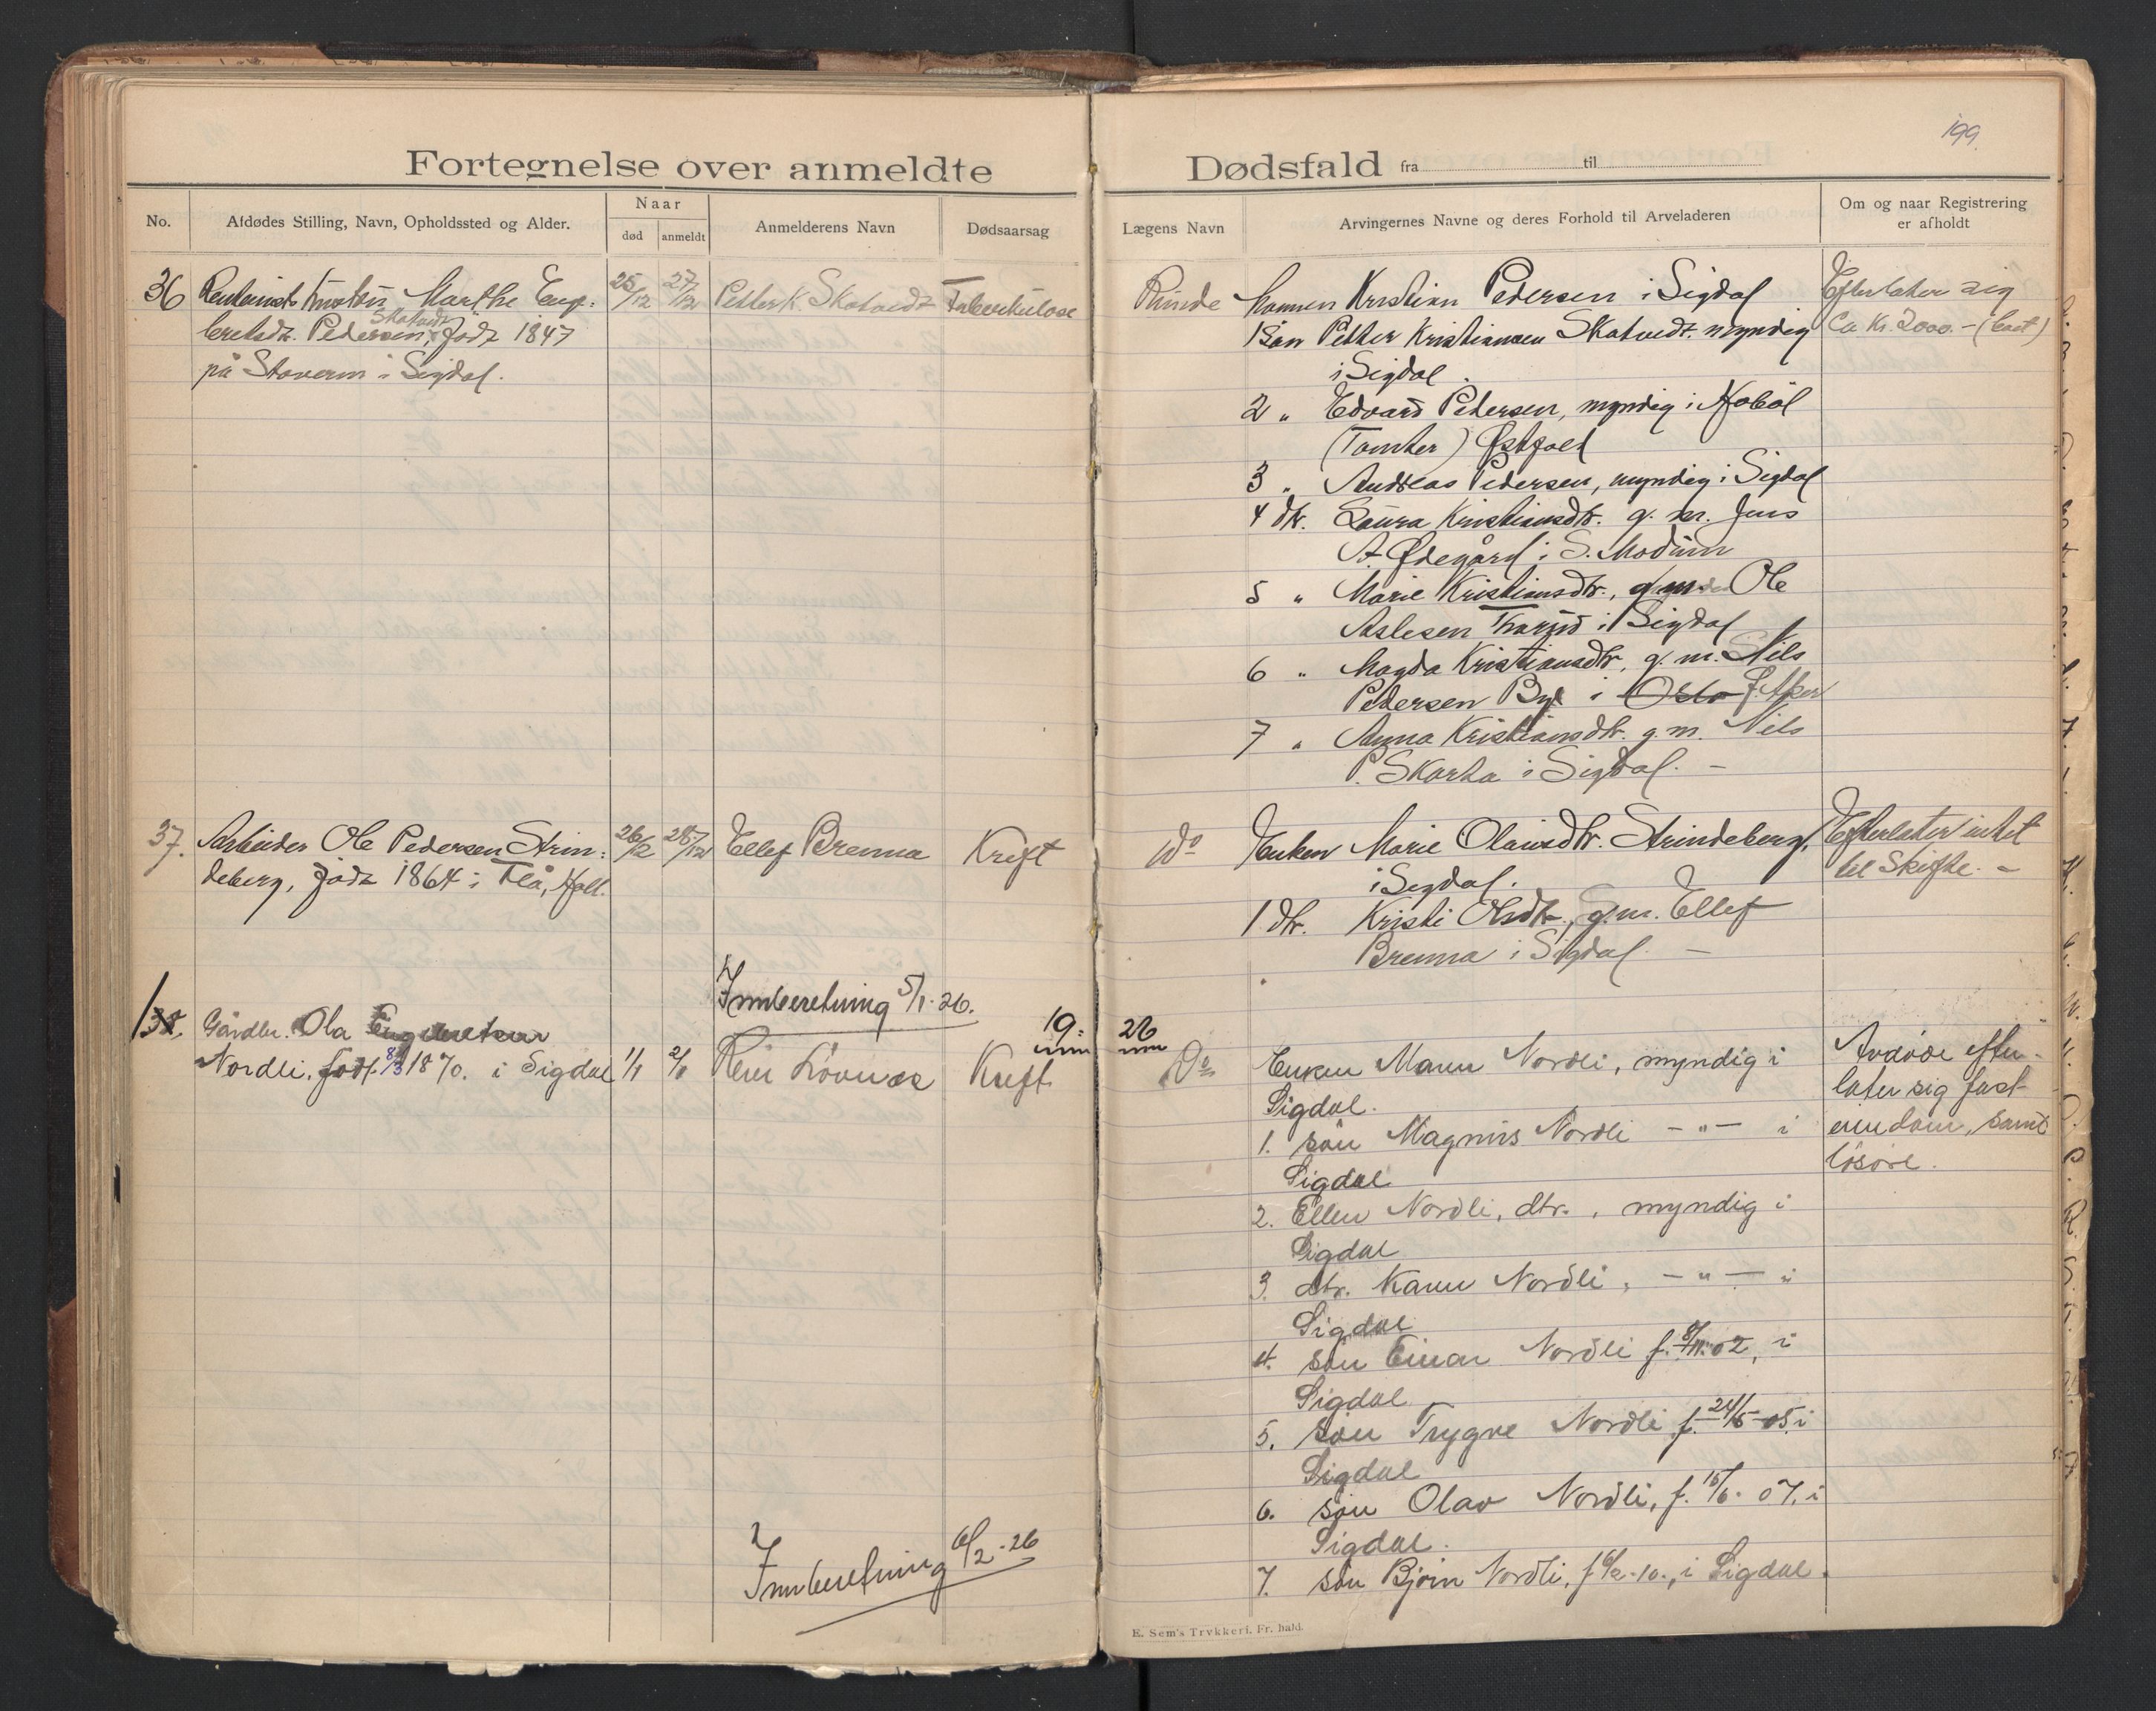 199.
Fortegnelse over anmeldte Dødsfald fra til
No.
Afdødes Stilling, Navn, Opholdssted og Alder.
Naar
død anmeldt
Anmelderens Navn
Dødsaarsag
Lægens Navn
Arvingernes Navne og deres Forhold til Arveladeren
Om og naar Registrering
er afholdt
36 Marthe Eng-
bretsdtr. Pedersen, Skatvedt født 1847
på Staverin i Sigdal.
25/12 27/12
Petter K. Skatvedt
Tuberkulose
Runde
Mannen Kristian Pedersen i Sigdal
1 søn Petter Kristiansen Skatvedt. myndig
i Sigdal.
2 " Edvard Pedersen, myndig i Hobøl
(Tomter) Østfold
3 " Andreas Pedersen, myndig i Sigdal
4 dtr. Laura Kristiansdtr. g. m. Jens
A. Ødegård i S. Modum
5 " Marie Kristiansdtr., g. m. Ole
Aslesen i Sigdal
6 " Magda Kristiansdtr, g. m. Nils
Pedersen Bye i Oslo Aker
7 " Anna Kristiansdtr. g. m. Nils
P. Skarta i Sigdal. -
Efterlater sig
Ca Kr. 2000.-
37. Arbeider Ole Pedersen Strin-
deberg, født 1864 i Flå, Hall.
26/12 28/12
Ellef Brenna
Kreft
do
Enken Marie Olausdtr. Strindeberg,
i Sigdal.
1 dtr. Kristi Olsdtr., g. m. Ellef
Brenna i Sigdal. -
Efterlater intet
til Skifte. -
Innberetning 5/1-26.
19 26
1 38. Gårdbr. Ola Engebretsen
Nordli, født 8/3 1870. i Sigdal
1/1 2/1
Løvnes
Kreft
Do
Enken Maren Nordli, myndig i
Sigdal.
1. søn Magnus Nordli -"- i
Sigdal
2. Ellen Nordli, dtr., myndig i
Sigdal
3. dtr. Karen Nordli, -"- i
Sigdal
4. søn Einar Nordli f. 8/11.02, i
Sigdal
5. søn Trygve Nordli f. 24/5-05, i
Sigdal
6. søn Olav Nordli, f. 15/6-07, i
Sigdal.
7. søn Bjørn Nordli, f. 6/2-10., i Sigdal.
Avdøde efter-
later sig fast
eiendom, samt
løsøre.
Innberetning 6/2-26
E. Sem's Trykkeri. Fr. hald.